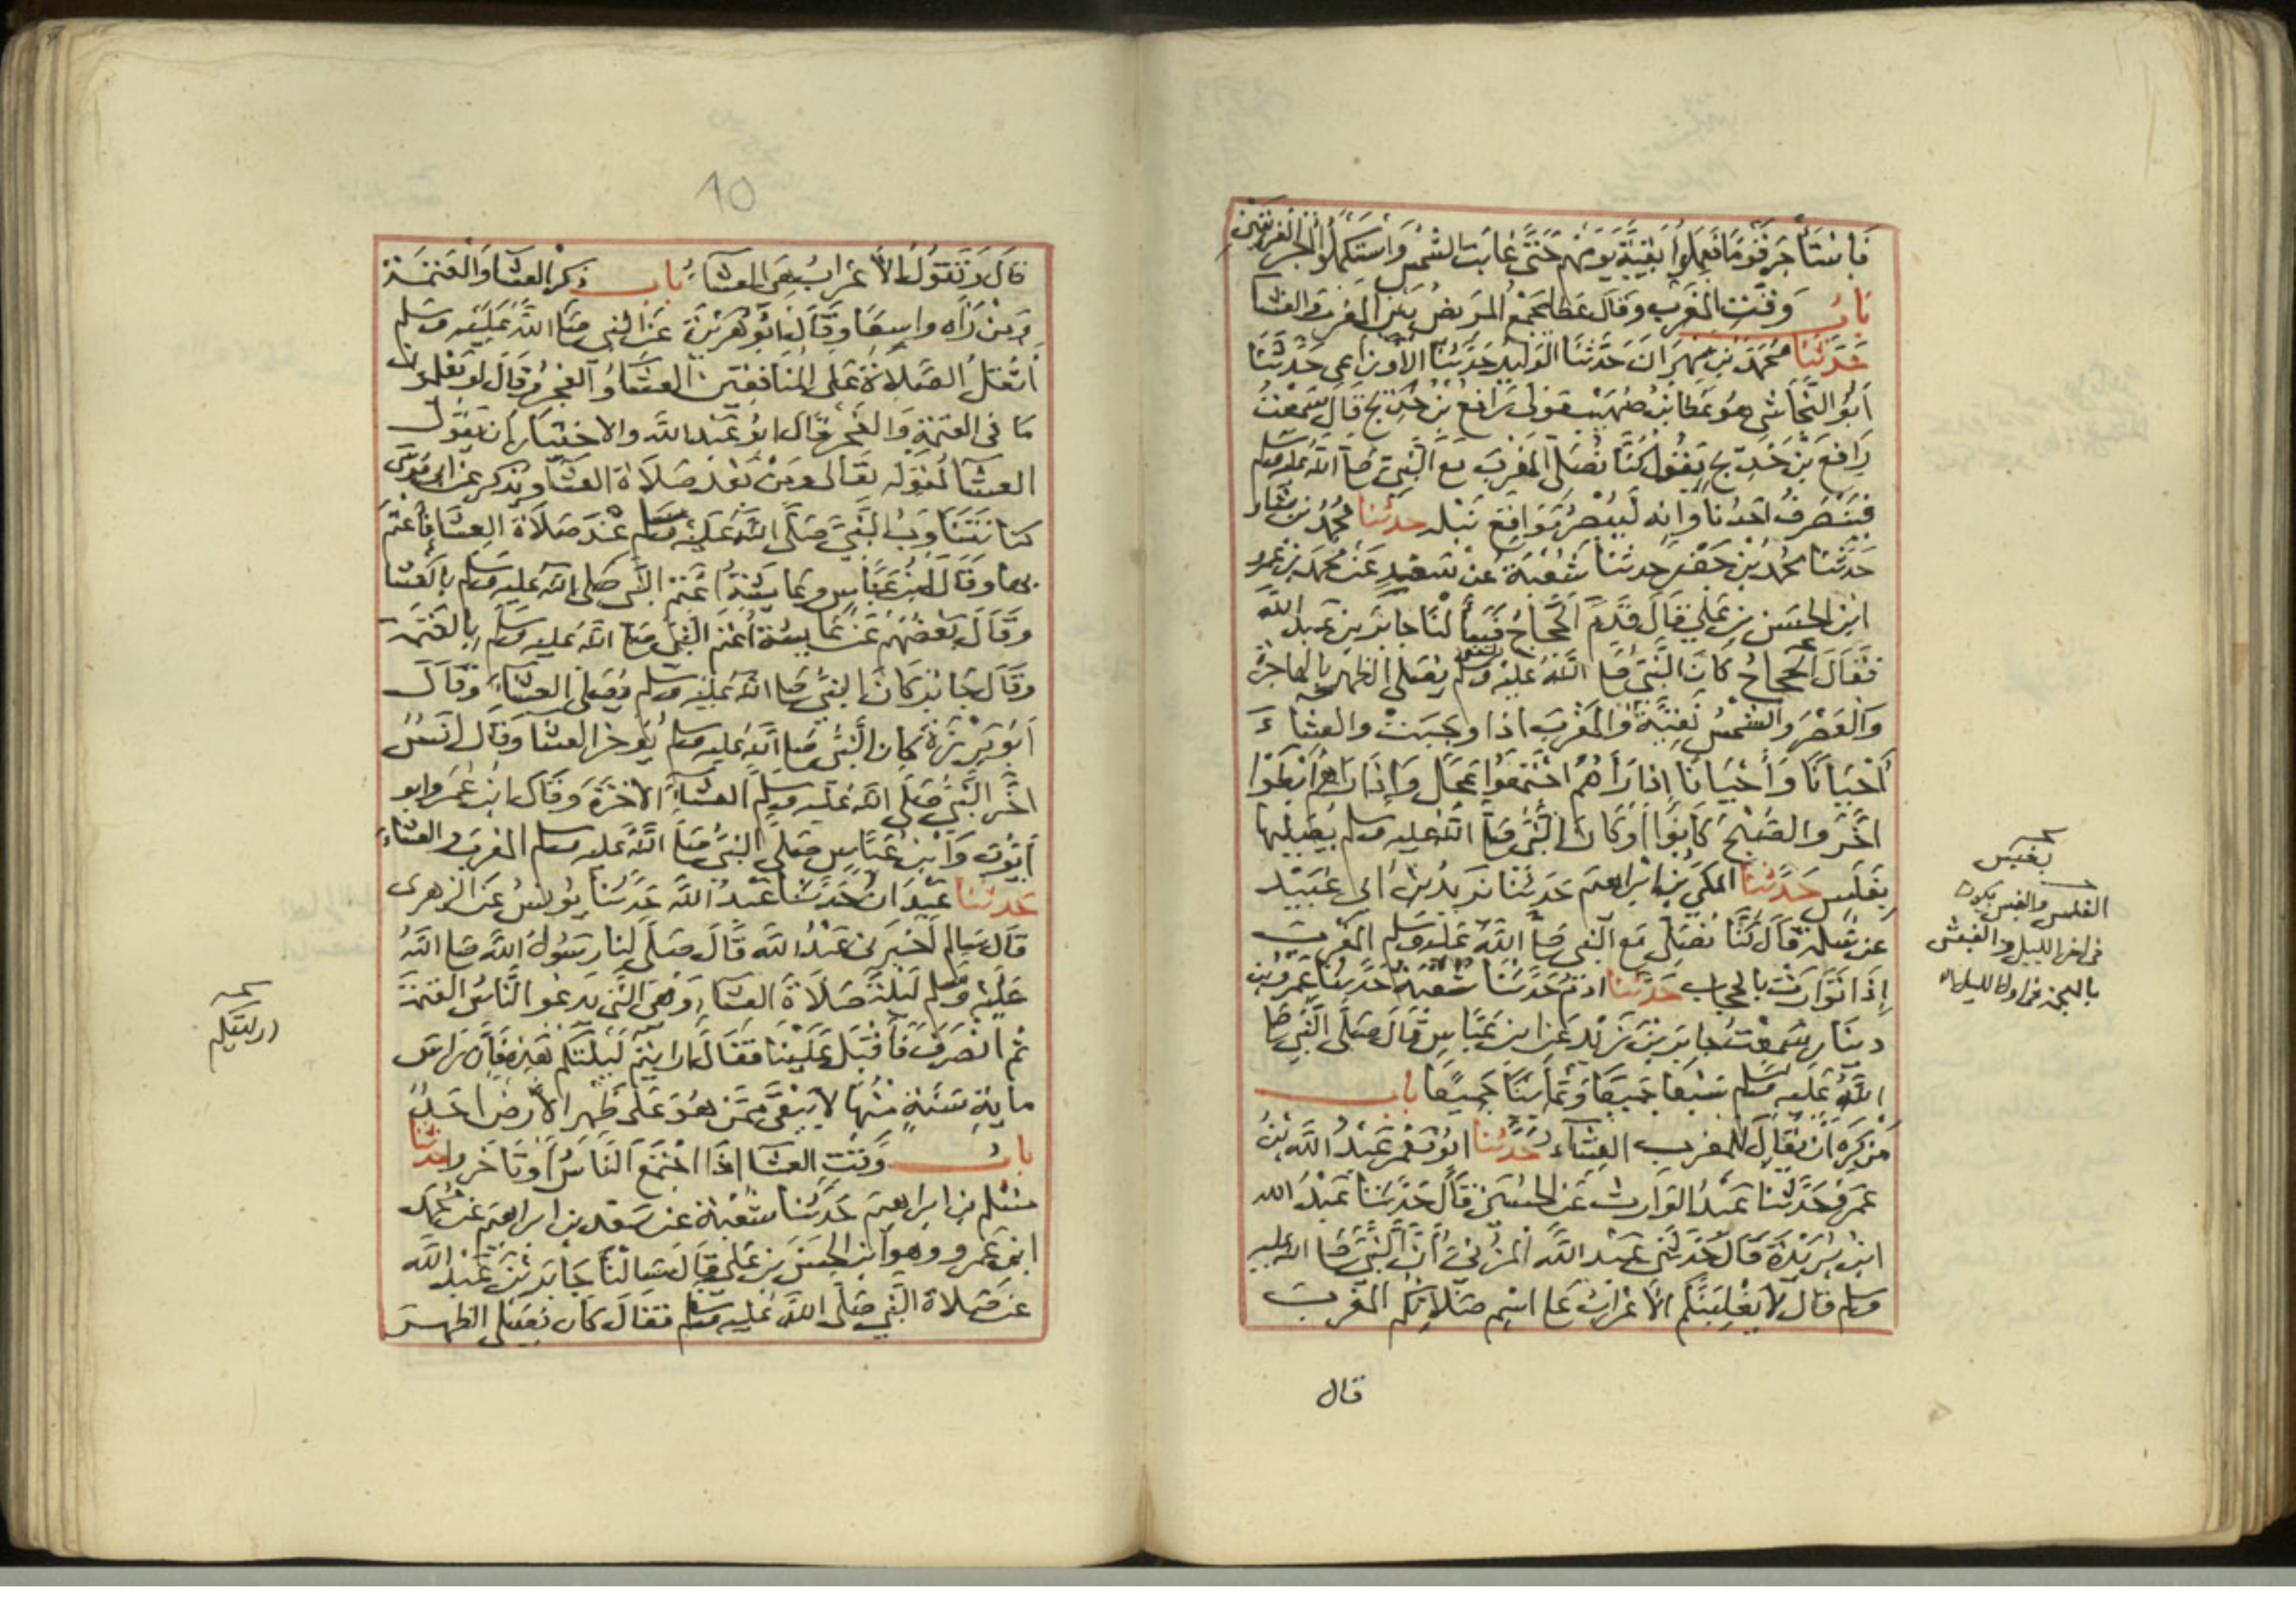 فَاسْتَأْجَرَ قَوْمًا فَعَمِلُوا بَقِيَّةَ يَوْمِهِمْ حَتَّى غَابَتِ الشَّمْسُ وَاسْتَكْمَلُوا أَجْرَ الفَرِيقَيْنِ
بَابُ وَقْتِ المَغْرِبِ وقَالَ عَطَا يَجْمَعُ المَرِيضُ بَيْنَ المَغْرِبِ وَالعِشَا
حَدَّثَنَا مُحَمَّدُ بن مِهْرَانَ حَدَّثَنَا الوَلِيدُ حَدَّثَنَا الأَوْزَاعِي حَدَّثَنَا
أَبُو النَّجَاشِي هُوَ عَطَا بْنُ صُهَيْبٍ مَوْلَى رَافِعِ بْنِ خَدِيجٍ قَالَ سَمِعْتُ
رَافِعَ بْنَ خَدِيجٍ يَقُولُ كُنَّا نُصَلِّي المَغْرِبَ مع النَّبِيِّ صَلَّى اللّهُ عليه وسلم
فَيَنْصَرِفُ أَحَدُنَا وَإِنَّه لَيُبْصِرُ مَوَاقِعَ نَبْلِه حدثنا مُحَمَّدُ بْنُ بَشَّار
حَدَّثَنَا مُحَمَّدُ بْنُ جَعْفَر حدثنا شُعْبَةُ عَنْ سَعْدٍ عَنْ مُحَمَّدِ بْنِ عَمْرِو
ابْنِ الحَسَنِ بْنِ عَلِيّ قَالَ قَدِمَ الحَجَّاجُ فَسَأَلْنَا جَابِرَ بْنَ عَبْدِ اللَّهِ
فَقَالَ الحَجَّاجُ كَانَ النَّبِيُّ صَلَّى اللَّهُ عَلَيْهِ وسلم يُصَلِّي الظهر بالهاجرة
وَالعَصْرَ والشَّمْسُ نَقِيَّةٌ وَالمَغْرِبَ اذا وجَبَتْ والعشاءَ
أَحْيَانًا وَأَحْيَانًا إذا رَآهُمُ اجْتَمَعُوا عَجَّلَ وَإِذَا رَآهُمْ أَبْطَوْا
أَخَّرَ والصُّبْحَ كَانُوا أَوْ كَانَ النَّبِيُّ صَلَّى اللّهُ عليه وسلم يُصَلِّيهَا
بِغَلَسٍ حَدَّثَنَا المَكِّيُّ بْنُ ابْرَاهِيمَ حَدَّثَنَا يَزِيدُ بْنُ أَبِي عُبَيْدٍ
عن سَلَمَةَ قَالَ كُنَّا نُصَلِّي مَعَ النَّبِي صَلَّى اللَّهُ عَلَيْه وَسَلم المَغْرِبَ
إِذَا تَوَارَتْ بِالْحِجَابِ حَدَّثَنَا ادَمُ حَدَّثَنَا شُعْبَةُ حَدَّثَنَا عَمْرُو بْنُ
دِينَارٍ سَمِعْتُ جَابِرَ بْنَ زَيْدٍ عَنِ ابن عَبَّاسٍ قَالَ صَلَّى النَّبِي صَلَّى
اللَّهُ عَلَيْهِ وَسلم سَبْعًا جَمِيعًا وَثَمَانِيًا جَمِيعًا بَابُ
مَنْ كَرِهَ أَنْ يُقَالَ لِلْمَغْرِبِ العِشَآء حَدَّثَنَا ابُو مَعْمَرٍ عَبْدُ اللَّهِ بْنُ
عَمْرٍو حَدَّثَنَا عَبْدُ الوَارِثِ عَنِ الحُسَيْنِ قَالَ حَدَّثَنَا عَبْدُ الله
ابْنُ بُرَيْدَةَ قَالَ حَدَّثَنِي عَبْدُ اللَّهِ المُزَنِيُّ أَنَّ النَّبِيَّ صَلَّى الله عليه
وسلم قال لَا يَغْلِبَنَّكُمُ الأَعْرَابُ عَلَى اسْمِ صَلَاتِكُم المَغْرِبِ
قال
بغبس
الغلس والغبس يكون
فى اخر الليل والغبش
10
قال وَتَقُولُ الأَعْرَابُ هِيَ العِشَاءُ بَابُ ذكْرِ العِشَا وَالعَتَمَة
وَمَنْ رَآه واسِعًا وَقَالَ أَبُو هُرَيْرَةَ عَنِ النبي صَلَّى اللَّهُ عَلَيْهِ وسلم
أَثْقَلُ الصَّلَاةِ عَلَى المُنَافِقِينَ العِشَاءُ وَالفجْرُ وَقَالَ لَوْ يَعْلَمُونَ
مَا فى العَتَمَةِ وَالفَجْرِ قال ابُو عَبْدِ اللَّهِ والاخْتِيَار أن يَقُولَ
العِشَآ لِقَوْلِه تَعَالى وَمِنْ بَعْدِ صَلَاةِ العِشَا وَيُذْكَرُ عَنْ أَبِي مُوسَى
كُنَّا نَتَنَاوَبُ النَّبِيَّ صَلَّى اللَّهُ عَلَيْهِ وَسلم عِنْدَ صَلَاةِ العِشَا فَأَعْتَمَ
بِهَا وَقَالَ ابْنُ عَبَّاسٍ وَعَايِشَةُ أَعْتَمَ النَّبِي صَلى اللّه عليه وسلم بِالعِشَا
وَقَالَ بَعْضُهُمْ عَنْ عَايِشَةَ أَعْتَمَ النَّبِيُّ صَلَّى اللَّه عليه وسلم بِالعَتَمَة
وَقَالَ جَابِرٌ كَانَ النبيُّ صَلى اللّهُ عَلَيْهِ وسلم يُصَلِّي العِشَاءَ وَقَالَ
أَبُو بَرْزَةَ كان النَّبِيُّ صَلى اللَّه عليه وسلم يُؤَخِّرُ العِشَا وَقَالَ أَنَسٌ
أَخَّرَ النَّبِيُّ صَلَّى اللَّه عَلَيْه وسلم العِشَآءَ الآخِرَةَ وَقَالَ ابْنُ عُمَرَ وَابو
أَيُّوبَ وَابْنُ عَبَّاسٍ صَلَّى النبيُّ صَلى اللَّهُ عَليه وسلم المغرِبَ والعشَاءَ
حَدَّثَنَا عَبْدَانُ حَدَّثَنَا عَبْدُ اللَّهِ حَدَّثَنَا يُونُسُ عَنِ الزُّهْرِي
قَالَ سَالِم أَخْبَرَنِي عَبْدُ اللَّهِ قَالَ صَلَّى لَنَا رَسُولُ اللَّهِ صَلى اللَّهُ
عَلَيْهِ وَسَلَّم لَيْلَةً صَلَاةَ العِشَآءِ وَهِيَ الَّتِي يَدْعُو النَّاسُ العَتَمَةَ
ثُمَّ انْصَرَفَ فَأَقْبَلَ عَلَيْنَا فَقَالَ أَرَأَيْتُمْ لَيْلَتَكُمْ هَذِهِ فَإِنَّ رَاس
ماية سَنَةٍ مِنْهَا لَا يَبْقَى مِمَّنْ هُوَ عَلَى ظَهْرِ الأَرْضِ أَحَدٌ
بابُ وَقْتِ العِشَا إذَا اجْتَمَعَ النَّاسُ أَوْ تَأَخَّرُوا حدثنا
مُسْلِم بن ابراهِيمَ حَدَّثَنَا شُعْبَةُ عَنْ سَعْدِ بن ابراهِيمَ عَنْ مُحَمَّد
ابْنِ عَمْرٍو وهو ابن الحَسَنِ بْنِ عَلِيّ قَالَ سَأَلْنَا جَابِرَ بْنَ عَبْدِ اللَّه
عَنْ صَلَاةِ النَّبِي صَلَّى اللَّهُ عَلَيْهِ وسلم فَقَالَ كَانَ يُصَلِّي الظهرَ